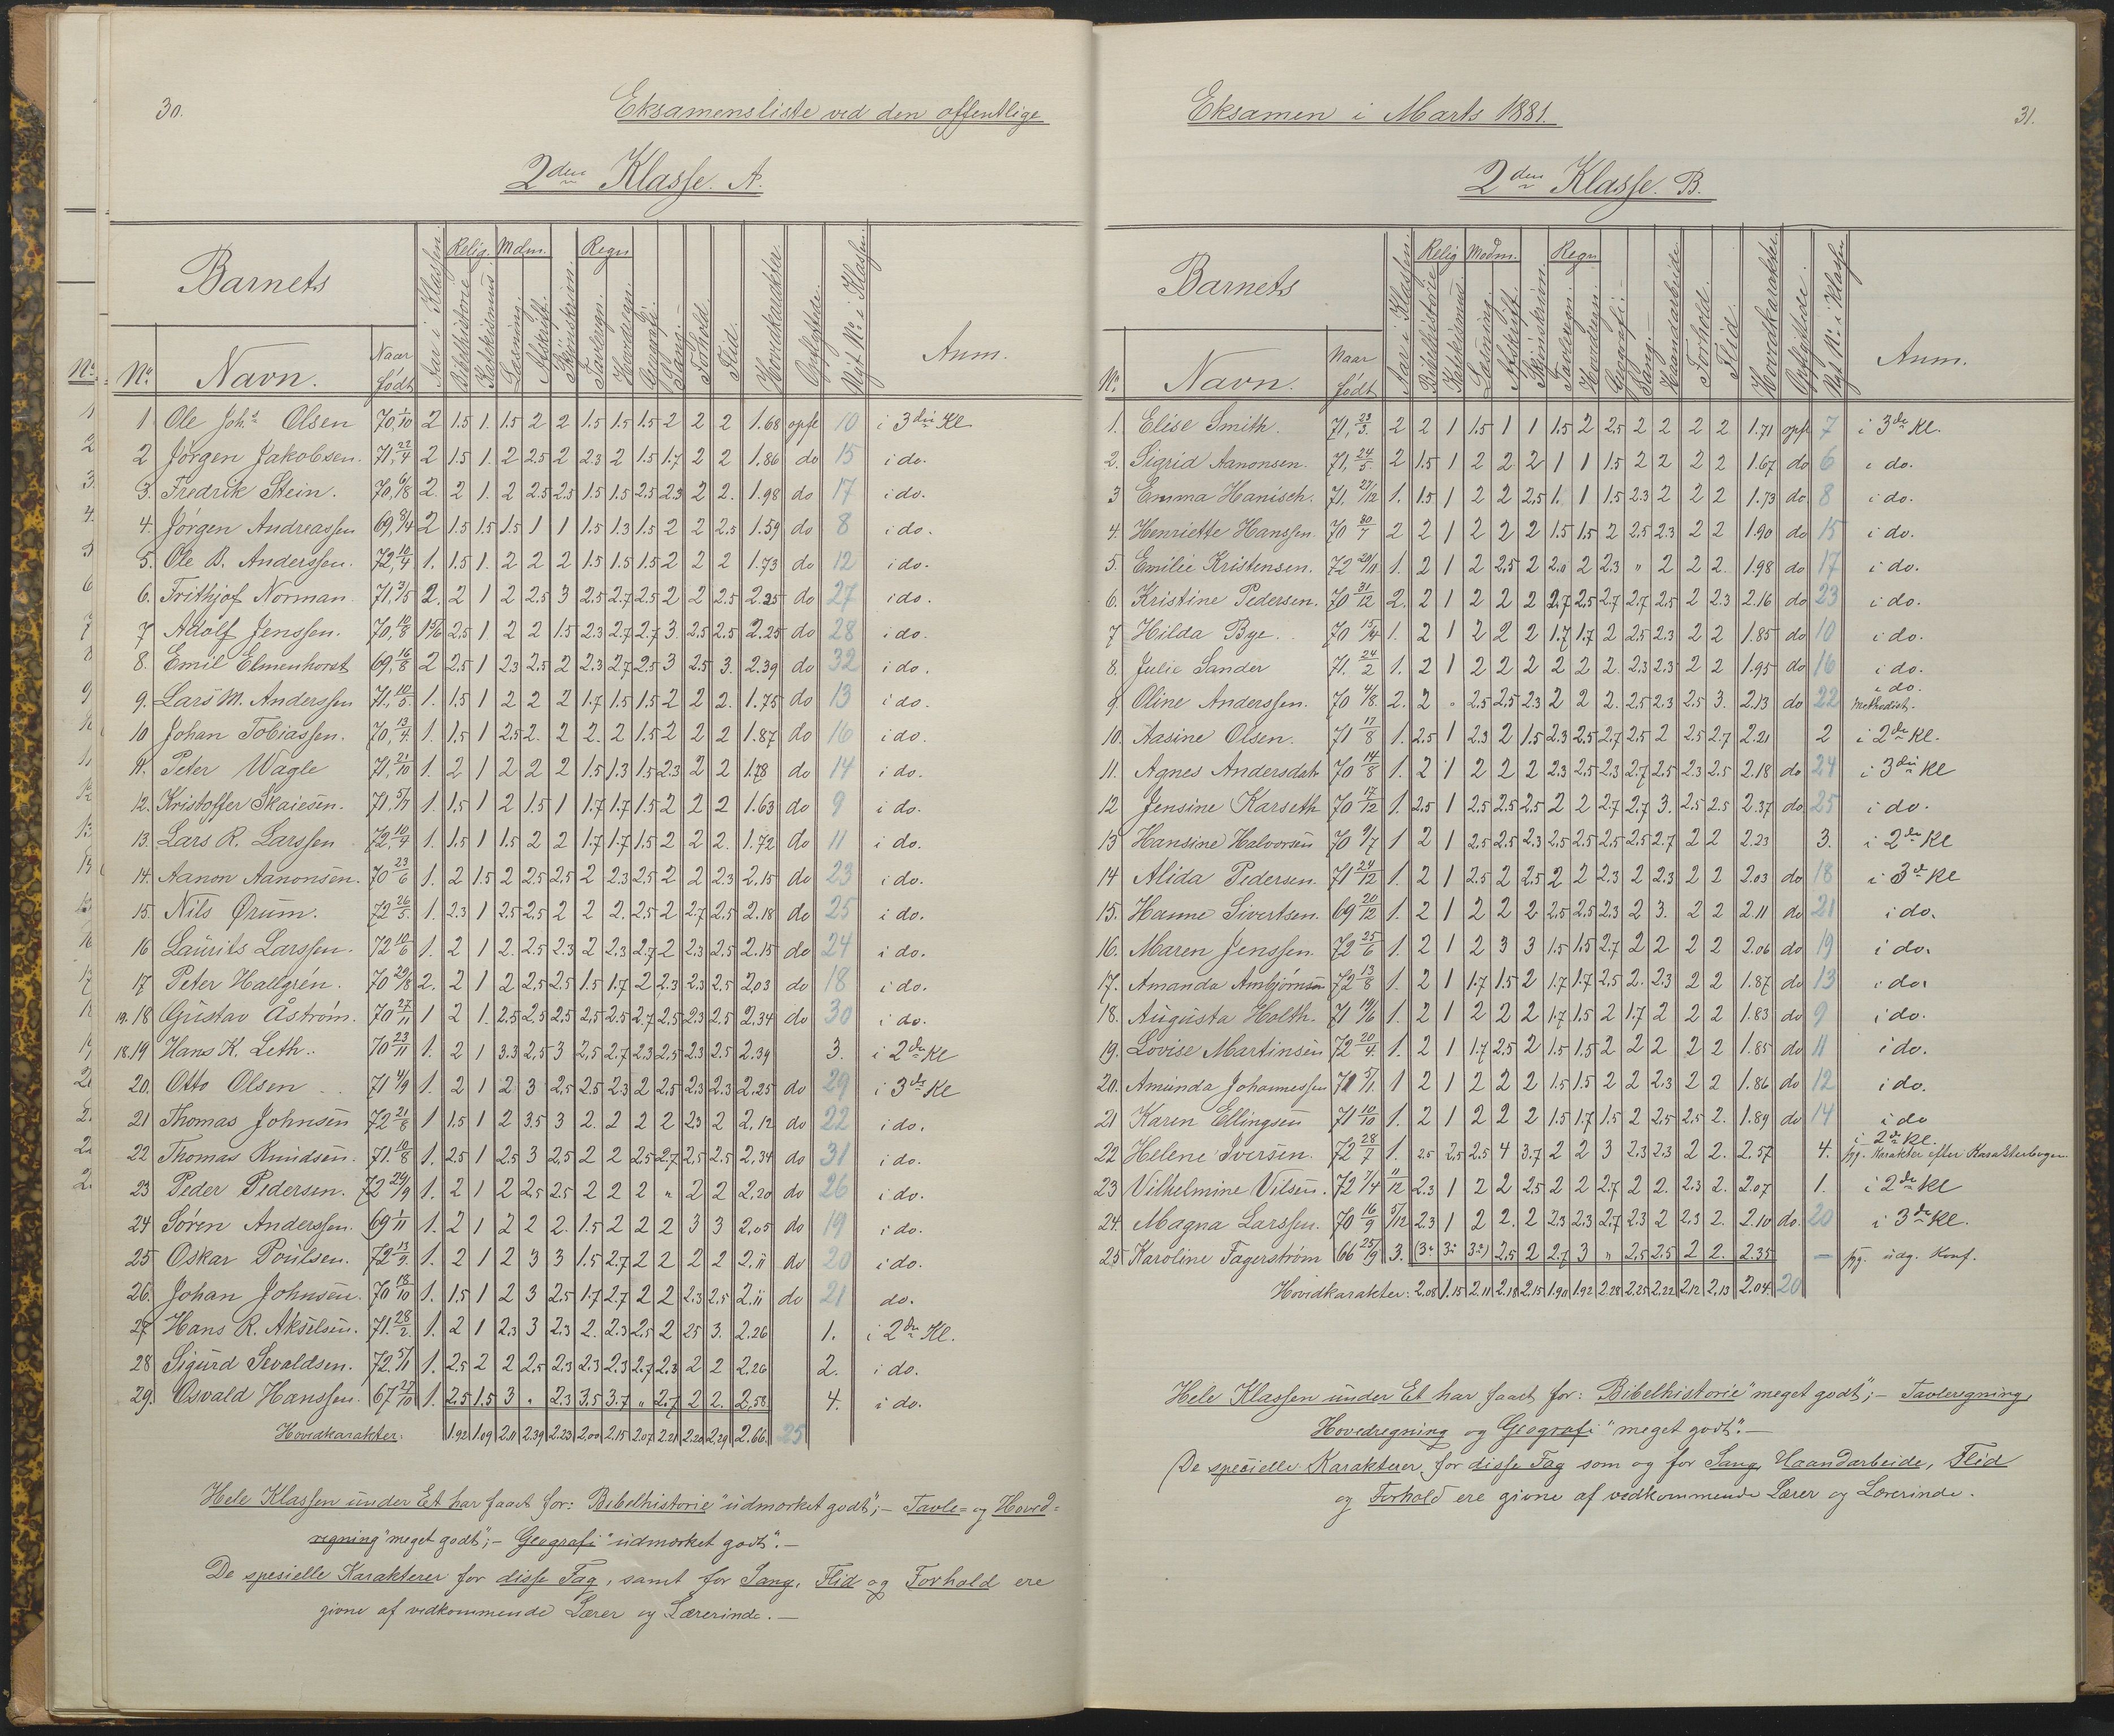 30.
Eksamensliste ved den offentlige
2den Klasse. A.
Barnets
Relig. Mdm. Regn
No. Navn. Naar født Aar i Klassen. Bibelhistorie Katekismus Læsning. Afskrift. Skjønskriv. Tavleregn. Hovedregn. Geografi. Sang. Forhold. Flid. Hovedkarakter. Opflyttede. Nyt No. i Klassen. Anm.
1 Ole Joh.s Olsen 70, 1/10 2 1.5 1. 1.5 2 2 1.5 1.5 1.5 2 2 2 1.68 opfl 10 i 3die Kl
2 Jørgen Jakobsen. 71, 22/4 2 1.5 1. 2 2.5 2 2.3 2 1.5 1.7 2 2 1.86 do 15 i do.
3. Fredrik Stein. 70, 6/8 2. 2 1. 2 2.5 2.5 1.5 1.5 2.5 2.3 2 2. 1.98 do 17 i do.
4. Jørgen Andreassen 69, 8/4 2 1.5 1.5 1.5 1 1 1.5 1.3 1.5 2 2 2.5 1.59 do 8 i do.
5. Ole B. Anderssen. 72, 10/4 1. 1.5 1. 2 2 2 1.5 1.5 1.5 2 2 2 1.73 do 12 i do.
6. Frithjof Norman 71, 31/5 2. 2 1 2 2.5 3 2.5 2.7 2.5 2 2 2.5 2.25 do 27 i do.
7 Adolf Jenssen. 70, 10/8 1 5/6 2.5 1. 2 2 1.5 2.3 2.7 2.7 3. 2.5 2.5 2.25 do 28 i do.
8. Emil Elmenhorst 69, 16/8 2 2.5 1 2.3 2.5 2 2.3 2.7 2.5 3 2.5 3. 2.39 do 32 i do.
9. Lars M. Anderssen 71, 10/5. 1. 1.5 1 2 2 2 1.7 1.5 1.5 2 2 2. 1.75 do 13 i do.
10 Johan Tobiassen. 70, 13/4 1. 1.5 1 2.5 2. 2 2. 2 1.5 2 2 2 1.87 do 16 i do.
11. Peter Wagle 71, 21/10 1. 2 1 2 2 2 1.5 1.3 1.5 2.3 2 2 1.78 do 14 i do.
12. Kristoffer Skaiesen. 71. 5/7 1. 1.5 1 2 1.5 1 1.7 1.7 1.5 2 2 2 1.63 do 9 i do.
13. Lars R. Larssen 72, 10/4 1. 1.5 1 1.5 2 2 1.7 1.7 1.5 2 2 2. 1.72 do 11 i do.
14. Aanon Aanonsen. 70 23/6 1. 2 1.5 2 2.5 2.5 2 2.3 2.5 2 2 2.3 2.15 do 23 i do.
15. Nils Ørum. 72 26/5. 1. 2.3 1 2.5 2.5 2 2 2. 2.5 2 2.7 2.5 2.18 do 25 i do.
16 Laurits Larssen. 72 10/6 1. 2 1 2. 2.5 2.3 2 2.3 2.7 2 2.3 2.5 2.15 do 24 i do.
17 Peter Hallgrén. 70 29/8 2. 2 1 2 2.5 2.5 1.5 1.7 2 2.3 2.3 2.5 2.03 do 18 i do.
19. 18 Gustav Åstrøm. 70 27/11 1 2 1. 2.5 2.5 2.5 2.5 2.5 2.7 2.5 2.3 2.5 2.34 do 30 i do.
18. 19 Hans K. Leth. 70 23/11 1. 2 1 3.3 2.5 3 2.5 2.7 2.3 2.5 2.3 2.5 2.39 3. i 2den Kl
20. Otto Olsen 71 4/9 1. 2 1 2 3 2.5 2.5 2.3 2 2.5 2.3 2.3 2.25 do 29 i 3die Kl
21 Thomas Johnsen 72 21/8 1 1.5 1 2 3.5 3 2. 2 2 2 2.3 2 2.12 do 22 i do.
22 Thomas Knudsen. 71. 10/8 1. 2.5 1 2.5 3 2.5 2 2 2.5 2.7 2.5 2.5 2.34 do 31 i do.
23 Peder Pedersen. 72 29/9 1. 2 1 2 2.5 2.5 2 2 2 " 2 2 2.20 do 26 i do.
24 Søren Anderssen. 69 1/11 1. 2 1 2 2 2. 1.5 2 2 2 3 3 2.05 do 19 i do.
25 Oskar Poulsen. 72 13/9. 1. 2 1 2 3 3 1.5 2.7 2 2 2 2 2.11 do 20 i do.
26. Johan Johnsen. 70 18/10 1. 1.5 1 2 3 2.5 1.7 2.7 2 2 2.3 2.5 2.11 do 21 do.
27 Hans R. Akselsen. 71. 28/2. 1. 2 1 2.3 3 2.3 2. 2.3 2.5 2 2.5 3. 2.26 1. i 2den Kl.
28 Sigurd Sevaldsen. 72. 5/11 1. 2.5 2 2 2.5 2.3 2.3 2.3 2.7 2.3 2 2 2.26 2. i do.
29. Osvald Hanssen. 67 27/10 1. 2.5 1.5 3 " 2.3 3.5 3.7 " 2.7 2 2. 2.58 4. i do.
Hovedkarakter: 1.92 1.09 2.11 2.39 2.23 2.00 2.15 2.07 2.21 2.20 2.29 2.66. 25
Hele Klassen under Et har faaet for: Bibelhistorie "udmærket godt"; – Tavle= og Hoved=
regning "meget godt"; – Geografi "udmærket godt". –
De spesielle Karakterer for disse Fag, samt for Sang, Flid og Forhold ere
givne af vedkommende Lærer og Lærerinde. –
Eksamen i Marts 1881.
31.
2den Klasse. B.
Barnets
Relig Modm. Regn
No. Navn. Naar født Aar i Klassen. Bibelhistorie Katekismus Læsning. Afskrift. Skjønskriv. Tavleregn. Hovedregn. Geografi. Sang. Haandarbeide. Forhold. Flid. Hovedkarakter. Opflyttede. Nyt No. i Klassen Anm.
1. Elise Smith. 71, 23/3. 2 2 1 1.5 1 1 1.5 2 2.5 2 2 2 2 1.71 opfl 7 i 3die Kl.
2. Sigrid Aanonsen. 71, 24/5 2 1.5 1 2 2 2 1 1 1.5 2 2 2 2 1.67 do 6 i do.
3 Emma Hanisch. 71. 27/12 1. 1.5 1 2 2 2.5 1. 1 1.5 2.3 2 2 2 1.73 do 8 i do.
4. Henriette Hanssen. 70 30/7 2 2 1 2 2 2 1.5 1.5 2 2.5 2.3 2 2 1.90 do 15 i do.
5. Emilie Kristensen. 72 20/11 1. 2 1 2 2.5 2 2.0 2 2.3 " 2 2 2. 1.98 do 17 i do.
6. Kristine Pedersen. 70 31/12 2. 2 1 2 2 2 2.7 2.5 2.7 2.7 2.5 2 2.3 2.16 do 23 i do.
7 Hilda Bye. 70 15/4 1. 2 1 2 2 2 1.7 1.7 2 2.5 2.3 2 2 1.85 do 10 i do.
8. Julie Sander 71. 24/2 1. 2 1 2 2 2 2 2 2. 2.3 2.3 2 2 1.95 do 16 i do.
9. Oline Anderssen. 70 4/8. 2. 2 " 2.5 2.5 2.3 2 2 2. 2.5 2.3 2.5 3. 2.13 do 22 i do. Methodist.
10. Aasine Olsen. 71 17/8 1. 2.5 1 2.3 2 1.5 2.3 2.5 2.7 2.5 2 2.5 2.7 2.21 2 i 2den Kl.
11. Agnes Andersdat 70 14/8 1. 2 1 2 2 2 2.3 2.5 2.3 2.7 2.5 2.3 2.5 2.18 do 24 i 3die Kl
12 Jensine Karseth 70 17/12 1. 2.5 1 2.5 2.5 2.5 2 2 2.7 2.7 3. 2.5 2.5 2.37 do 25 i do.
13 Hansine Halvorsen 70 9/7 1 2 1 2.5 2.5 2.3 2.5 2.5 2.5 2.5 2.7 2 2 2.23 3. i 2den Kl
14 Alida Pedersen. 71 24/12 1. 2 1 2.5 2 2.5 2 2 2.3 2 2.3 2 2 2.03 do 18 i 3die Kl
15. Hanne Sivertsen. 69 20/12 1. 2 1 2 2 2 2.5 2.5 2.3 2 3. 2 2 2.11 do 21 i do.
16. Maren Jenssen. 72 25/6 1. 2 1 2 3 3 1.5 1.5 2.7 2 2 2 2 2.06 do 19 i do.
17. Amanda Ambjørnsen 72 13/8 1. 2 1 1.7 1.5 2 1.7 1.7 2.5 2. 2.3 2 2 1.87 do 13 i do.
18. Augusta Holth. 71 19/6 1. 2 1 2 2 2 1.7 1.5 2 1.7 2 2 2 1.83 do 9 i do.
19. Lovise Martinsen 72 20/4. 1. 2 1 1.7 2.5 2 1.5 1.5 2 2 2 2 2 1.85 do 11 i do.
20. Amunda Johannessen 71 5/11. 1 2 1 2 2 2 1.5 1.5 2 2 2.3 2 2 1.86 do 12 i do.
21 Karen Ellingsen 71 10/10 1. 2 1 2 2 2 1.5 1.7 1.5 2 2.5 2.5 2. 1.89 do 14 i do
22 Helene Iversen. 72 28/7 1. 2.5 2.5 2.5 4 3.7 2 2 3 2.3 2.3 2 2. 2.57 4. i 2den Kl. syg. Karakter efter Karakterbogen
23 Vilhelmine Nilsen. 72 7/4 11/12 2.3 1 2 2 2.5 2 2 2.7 2 2. 2.3 2. 2.07 1. i 2den Kl
24. Magna Larssen. 70 16/9 5/12 2.3 1 2 2. 2 2.3 2.3 2.7 2.3 2 2.3 2. 2.10 do. 20 i 3die Kl.
25 Karoline Fagerstrøm 66 25/9 3. (3. 3. 3.) 2.5 2 2.7 3 " 2.5 2.5 2 2. 2.35 — syg. udg. Konf.
Hovedkarakter: 2.08 1.15 2.11 2.18 2.15 1.90 1.92 2.28 2.25 2.22 2.12 2.13 2.04. 20
Hele Klassen under Et har faaet for: Bibelhistorie "meget godt"; – Tavleregning,
Hovedregning og Geografi "meget godt". –
De spesielle Karakterer for disse Fag som og for Sang, Haandarbeide, Flid
og Forhold ere givne af vedkommende Lærer og Lærerinde.